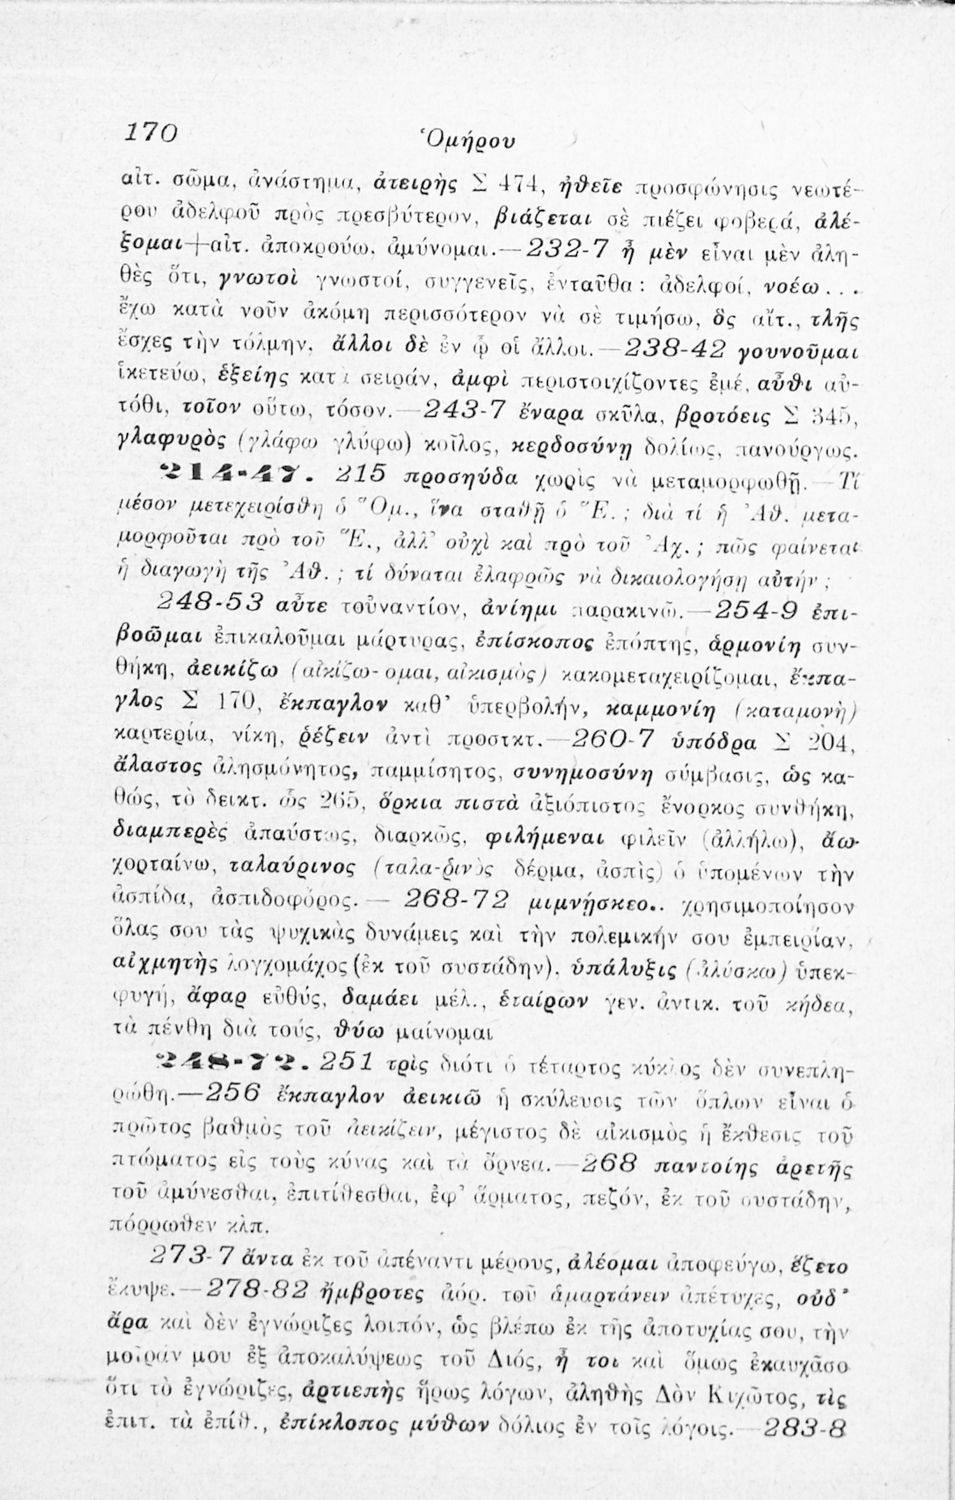 170
Ὁμήρου
αἰτ. σῶμα, ἀνάστημα, ἀτειρὴς Σ 474, ἠθεῖε προσφώνησις νεωτέ-
ρου ἀδελφοῦ πρὸς πρεσβύτερον, βιάζεται σὲ πιέζει φοβερά, ἀλέ-
ξομαι+αἰτ. ἀποκρούω, ἀμύνομαι.—232-7 ἦ μὲν εἶναι μὲν ἀλη-
θὲς ὅτι, γνωτοὶ γνωστοί, συγγενεῖς, ἐνταῦθα: ἀδελφοί, νοέω...
ἔχω κατὰ νοῦν ἀκόμη περισσότερον νὰ σὲ τιμήσω, ὃς αἴτ., τλῆς
ἔσχες τὴν τόλμην, ἄλλοι δὲ ἐν ᾧ οἱ ἄλλοι.—238-42 γουνοῦμαι
ἱκετεύω, ἑξείης κατὰ σειράν, ἀμφὶ περιστοιχίζοντες ἐμέ, αὖθι αὐ-
τόθι, τοῖον οὕτω, τόσον.—243-7 ἔναρα σκῦλα, βροτόεις Σ 345,
γλαφυρὸς (γλάφω γλύφω) κοῖλος, κερδοσύνῃ δολίως, πανούργως.
214-47. 215 προσηύδα χωρὶς νὰ μεταμορφωθῇ.—Τί
μέσον μετεχειρίσθη ὁ Ὅμ., ἵνα σταθῇ ὁ Ἕ.; διὰ τί ἡ Ἀθ. μετα-
μορφοῦται πρὸ τοῦ Ἕ., ἀλλ' οὐχὶ καὶ πρὸ τοῦ Ἀχ.; πῶς φαίνεται
ἡ διαγωγὴ τῆς Ἀθ.; τί δύναται ἐλαφρῶς νὰ δικαιολογήσῃ αὐτήν;
248-53 αὖτε τοὐναντίον, ἀνίημι παρακινῶ.—254-9 ἐπι-
βοῶμαι ἐπικαλοῦμαι μάρτυρας, ἐπίσκοπος ἐπόπτης, ἁρμονίη συν-
θήκη, ἀεικίζω (αἰκίζω-ομαι, αἰκισμὸς) κακομεταχειρίζομαι, ἔκπα-
γλος Σ 170, ἔκπαγλον καθ' ὑπερβολήν, καμμονίη (καταμονὴ)
καρτερία, νίκη, ῥέζειν ἀντὶ προστκτ.—260-7 ὑπόδρα Σ 204,
ἄλαστος ἀλησμόνητος, παμμίσητος, συνημοσύνη σύμβασις, ὡς κα-
θώς, τὸ δεικτ. ὣς 265, ὅρκια πιστὰ ἀξιόπιστος ἔνορκος συνθήκη,
διαμπερὲς ἀπαύστως, διαρκῶς, φιλήμεναι φιλεῖν (ἀλλήλω), ἄω
χορταίνω, ταλαύρινος (ταλα-ῥινὸς δέρμα, ἀσπὶς) ὁ ὑπομένων τὴν
ἀσπίδα, ἀσπιδοφόρος.— 268-72 μιμνῄσκεο.. χρησιμοποίησον
ὅλας σου τὰς ψυχικὰς δυνάμεις καὶ τὴν πολεμικήν σου ἐμπειρίαν,
αἰχμητὴς λογχομάχος (ἐκ τοῦ συστάδην), ὑπάλυξις (ἀλύσκω) ὑπεκ-
φυγή, ἄφαρ εὐθύς, δαμάει μέλ., ἑταίρων γεν. ἀντικ. τοῦ κήδεα,
τὰ πένθη διὰ τούς, θύω μαίνομαι
248-72. 251 τρὶς διότι ὁ τέταρτος κύκλος δὲν συνεπλη-
ρώθη.—256 ἔκπαγλον ἀεικιῶ ἡ σκύλευσις τῶν ὅπλων εἶναι ὁ
πρῶτος βαθμὸς τοῦ ἀεικίζειν, μέγιστος δὲ αἰκισμὸς ἡ ἔκθεσις τοῦ
πτώματος εἰς τοὺς κύνας καὶ τὰ ὄρνεα.—268 παντοίης ἀρετῆς
τοῦ ἀμύνεσθαι, ἐπιτίθεσθαι, ἐφ' ἅρματος, πεζόν, ἐκ τοῦ συστάδην,
πόρρωθεν κλπ.
273-7 ἄντα ἐκ τοῦ ἀπέναντι μέρους, ἀλέομαι ἀποφεύγω, ἕζετο
ἔκυψε.—278-82 ἤμβροτες ἀόρ. τοῦ ἁμαρτάνειν ἀπέτυχες, οὐδ'
ἄρα καὶ δὲν ἐγνώριζες λοιπόν, ὡς βλέπω ἐκ τῆς ἀποτυχίας σου, τὴν
μοῖράν μου ἐξ ἀποκαλύψεως τοῦ Διός, ἦ τοι καὶ ὅμως ἐκαυχᾶσο
ὅτι τὸ ἐγνώριζες, ἀρτιεπὴς ἥρως λόγων, ἀληθὴς Δὸν Κιχῶτος, τὶς
ἐπιτ. τὰ ἐπίθ., ἐπίκλοπος μύθων δόλιος ἐν τοῖς λόγοις.—283-8